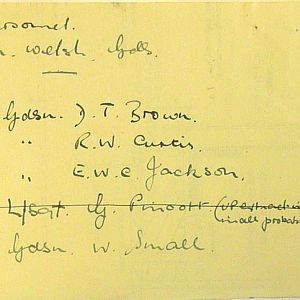 Personnel.
Welsh Gds.
Gdsn. D. T. Brown.
" R. W. Curtis
" E. W. C. Jackson.
L/Sgt. G. Pincott
small probab
Gdsn W. Small.